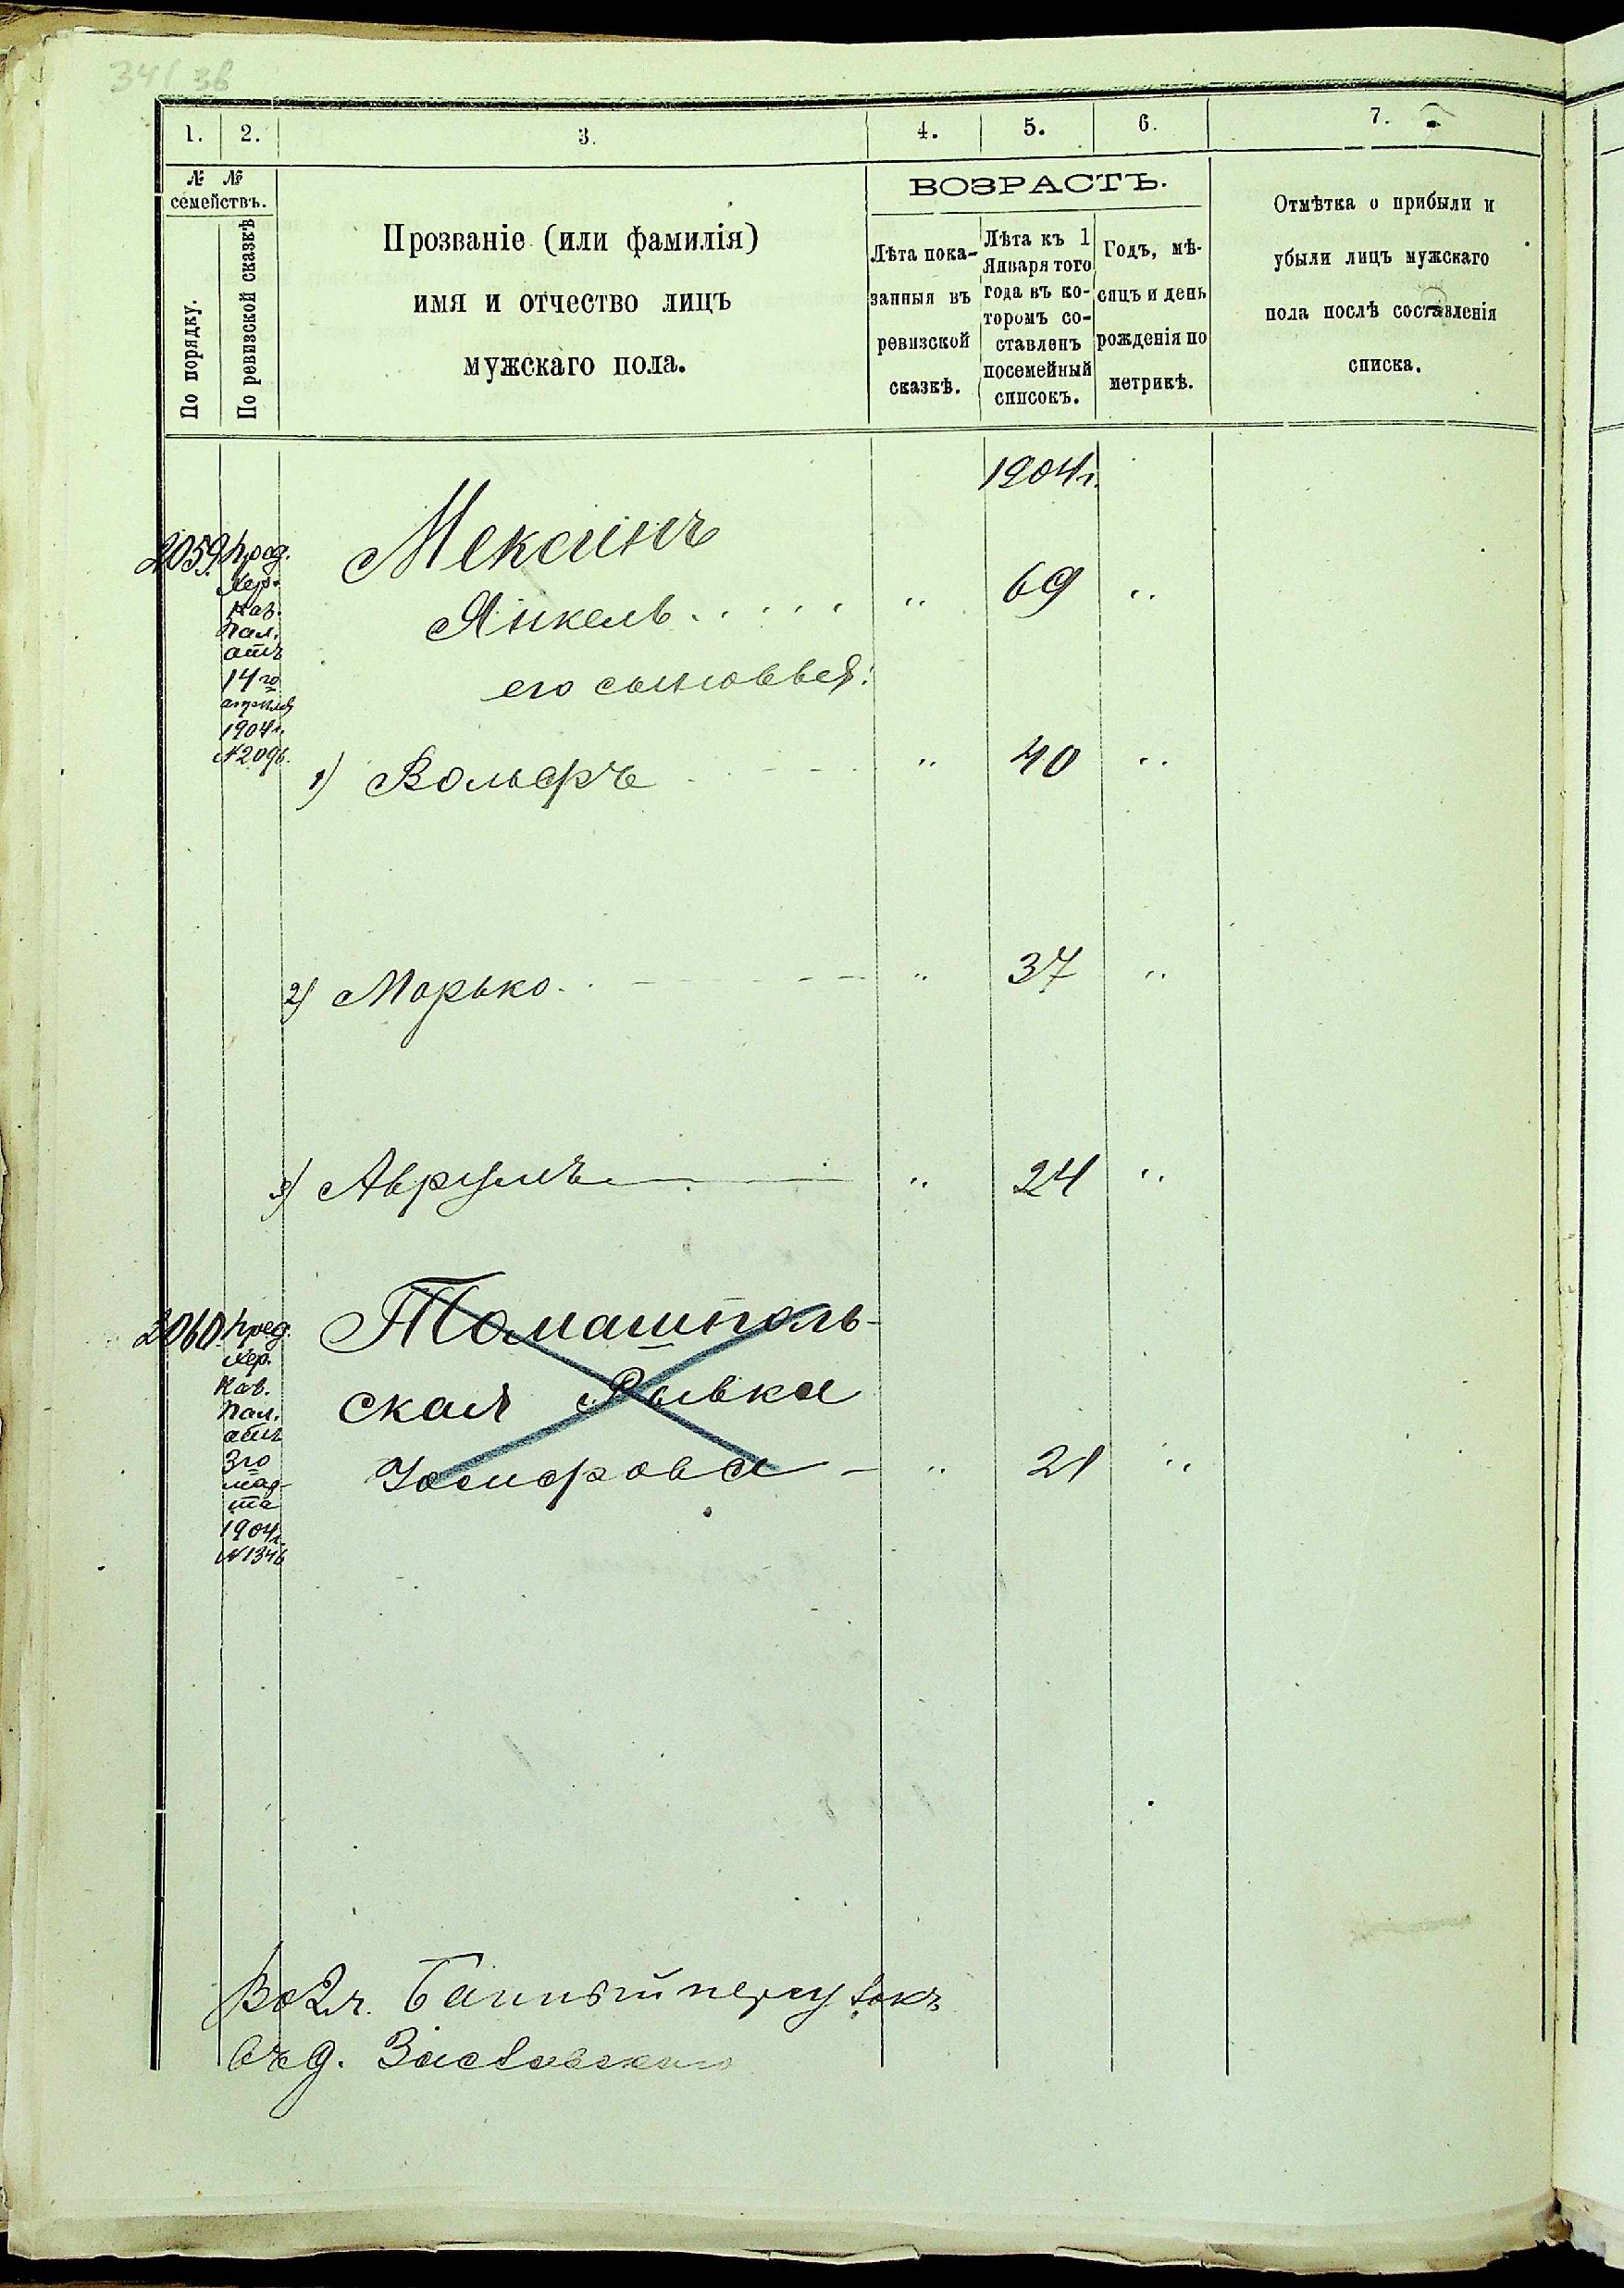 341 36
1. 2. 3. 4. 5. 6. 7.
№ №
семействъ.
По порядку.
По ревизской сказкѣ
Прозваніе (или фамилія)
имя и отчество лицъ
мужскаго пола.
ВОЗРАСТЪ.
Лѣта пока-
занныя въ
ревизской
сказкѣ.
Лѣта къ 1
Января того
года въ ко-
торомъ со-
ставленъ
посемейный
списокъ.
Годъ, мѣ-
сяцъ и день
рожденія по
метрикѣ.
Отмѣтка о прибыли и
убыли лицъ мужскаго
пола послѣ составленія
списка.
1904 г.
2059.
Пред.
Хер.
Каз.
Пал.
отъ
14го
апрѣля
1904 г.
№ 2096.
Мексинъ
Янкель . . . . . " 69 "
его сыновья:
1) Вольфъ " 40 "
2) Морько " 37 "
3) Аврумъ " 24 "
2060.
Пред.
Хер.
Каз.
Пал.
отъ
3го
мар-
та
1904 г.
№ 1346
Томашполь-
ская Рывка
Іосифова — " 21 "
Во 2 ч. Банный переулокъ
въ д. Заславскаго